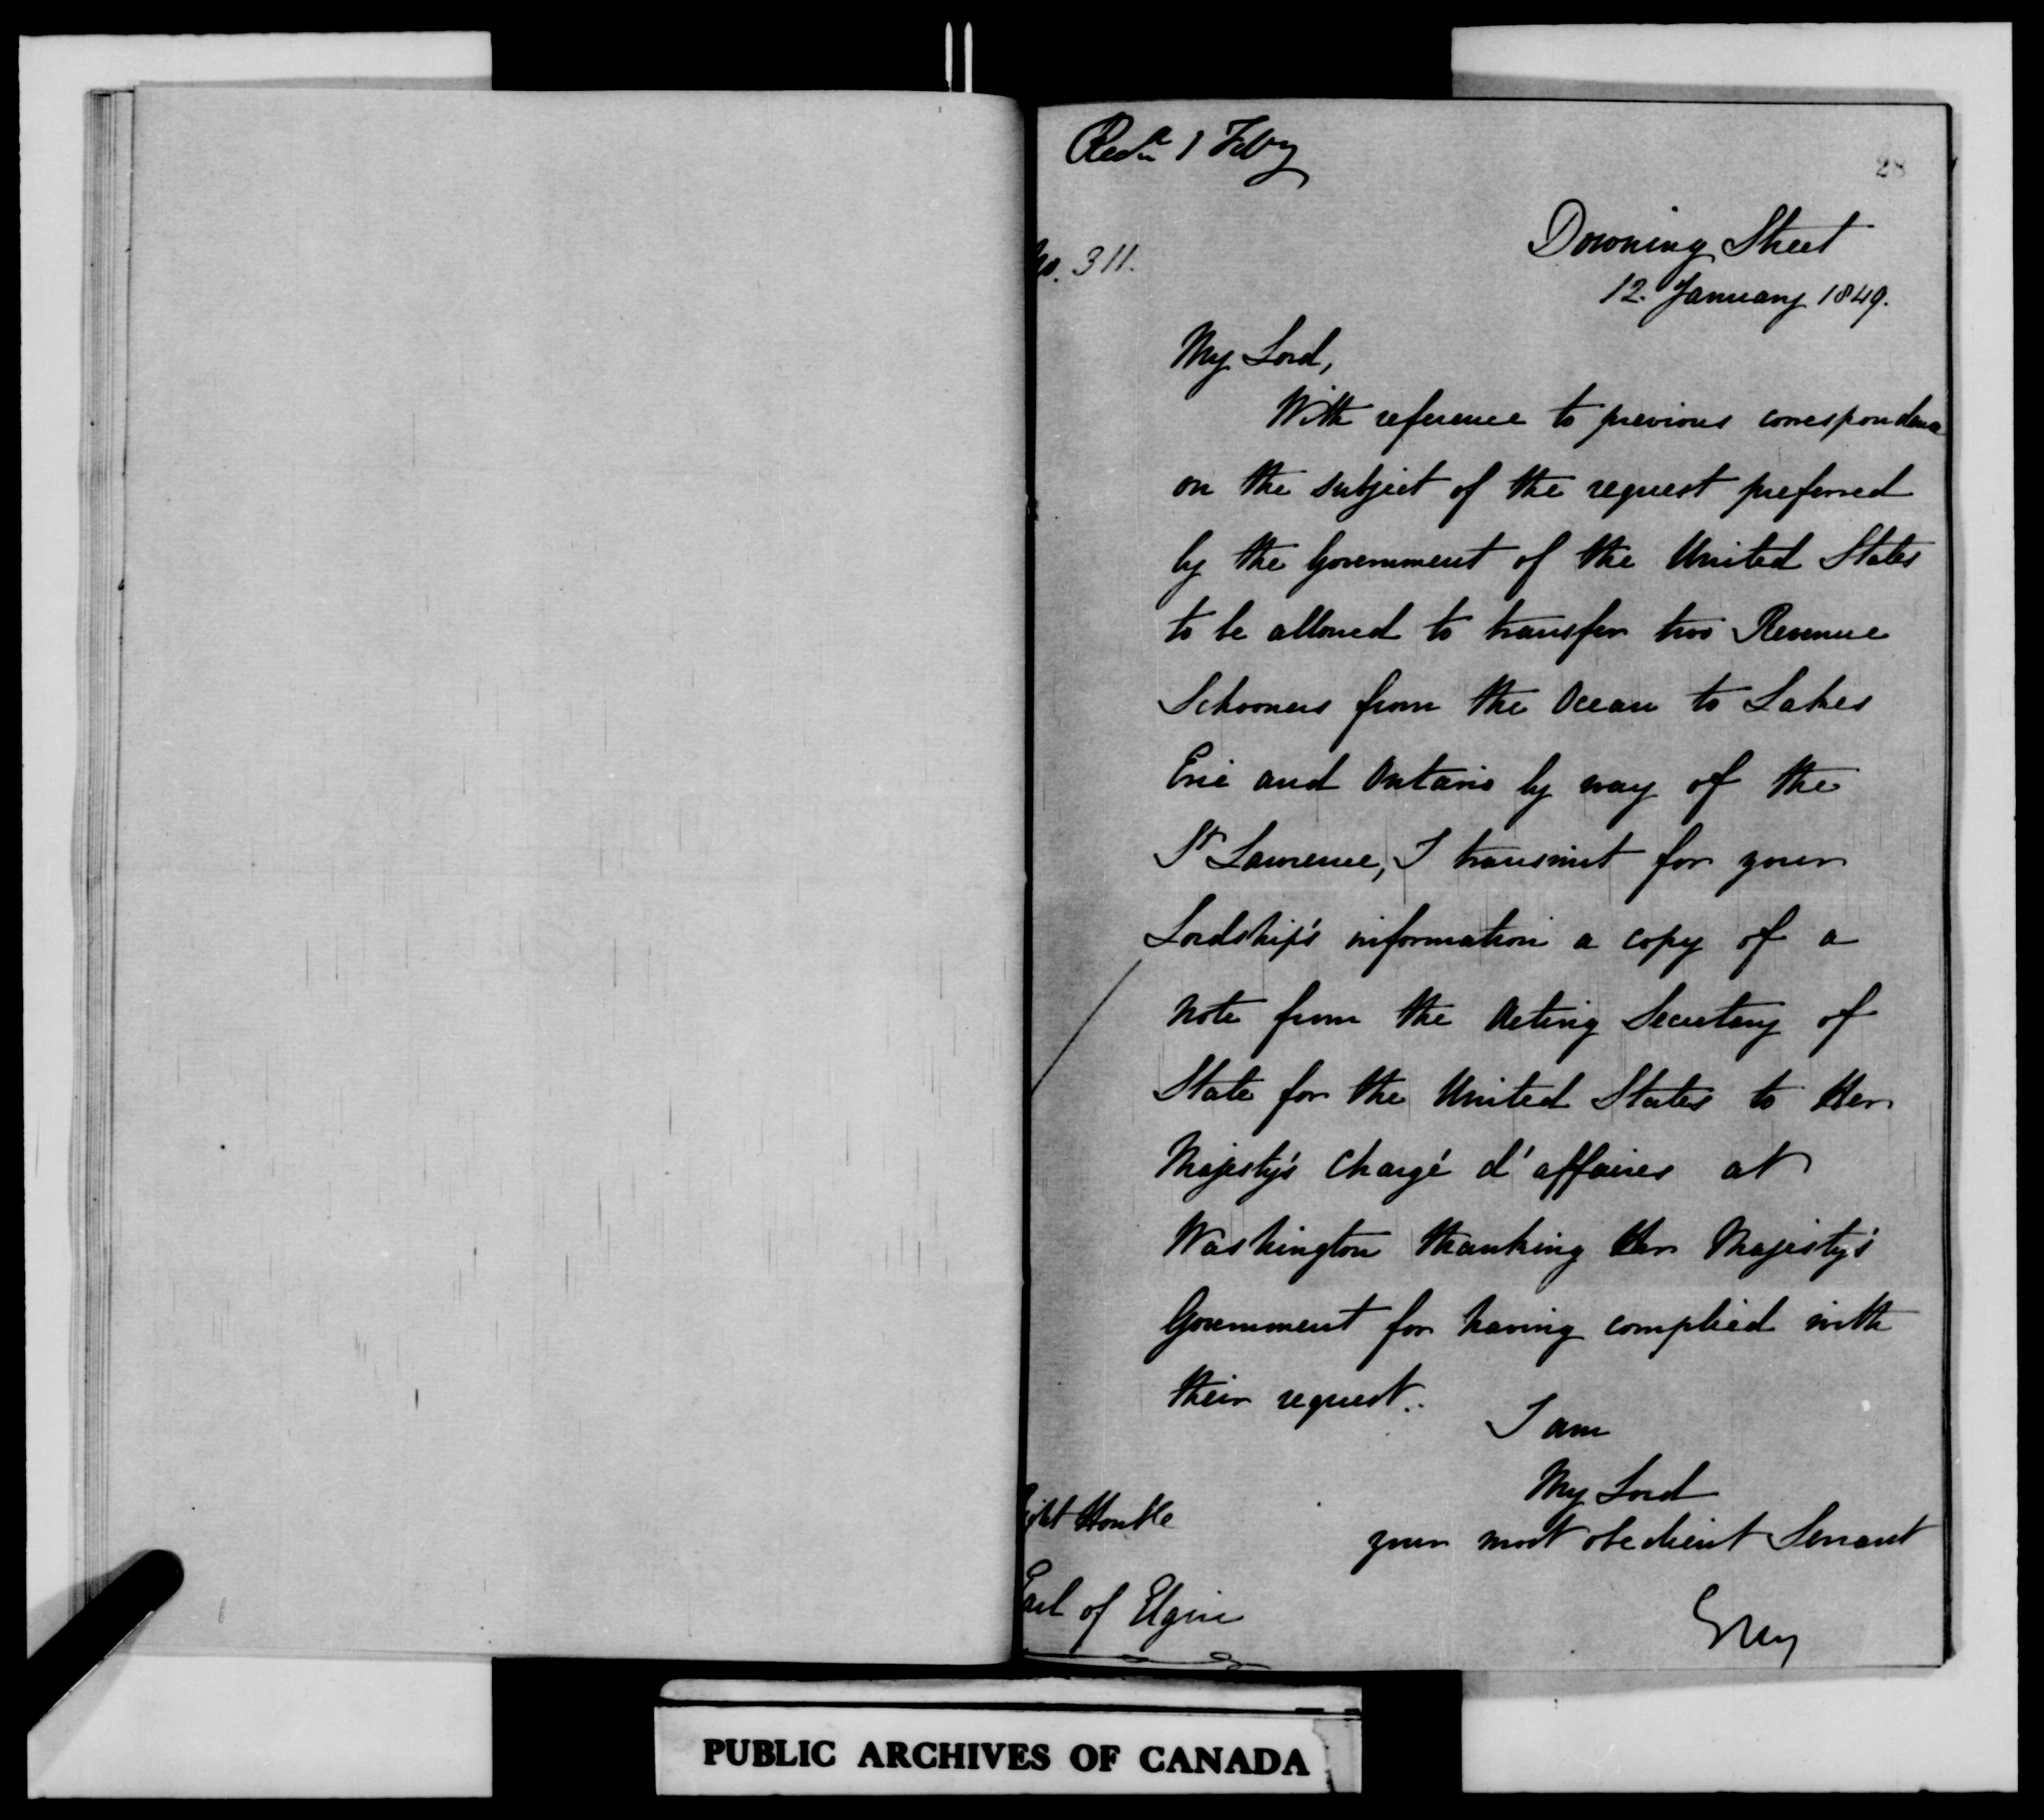 Recd 1 Feby
28
No. 311.
Downing Street
12. January 1849.
My Lord,
With reference to previous correspondence
on the subject of the request preferred
by the Government of the United States
to be allowed to transfer two Revenue
Schooners from the Ocean to Lakes
Erie and Ontario by way of the
St Lawrence, I transmit for your
Lordship's information a copy of a
note from the Acting Secretary of
State for the United States to Her
Majesty's Chargé d'affaires at
Washington thanking Her Majesty's
Government for having complied with
their request..
I am
My Lord
your most obedient Servant
Grey
ight Honble
Earl of Elgin
PUBLIC ARCHIVES OF CANADA